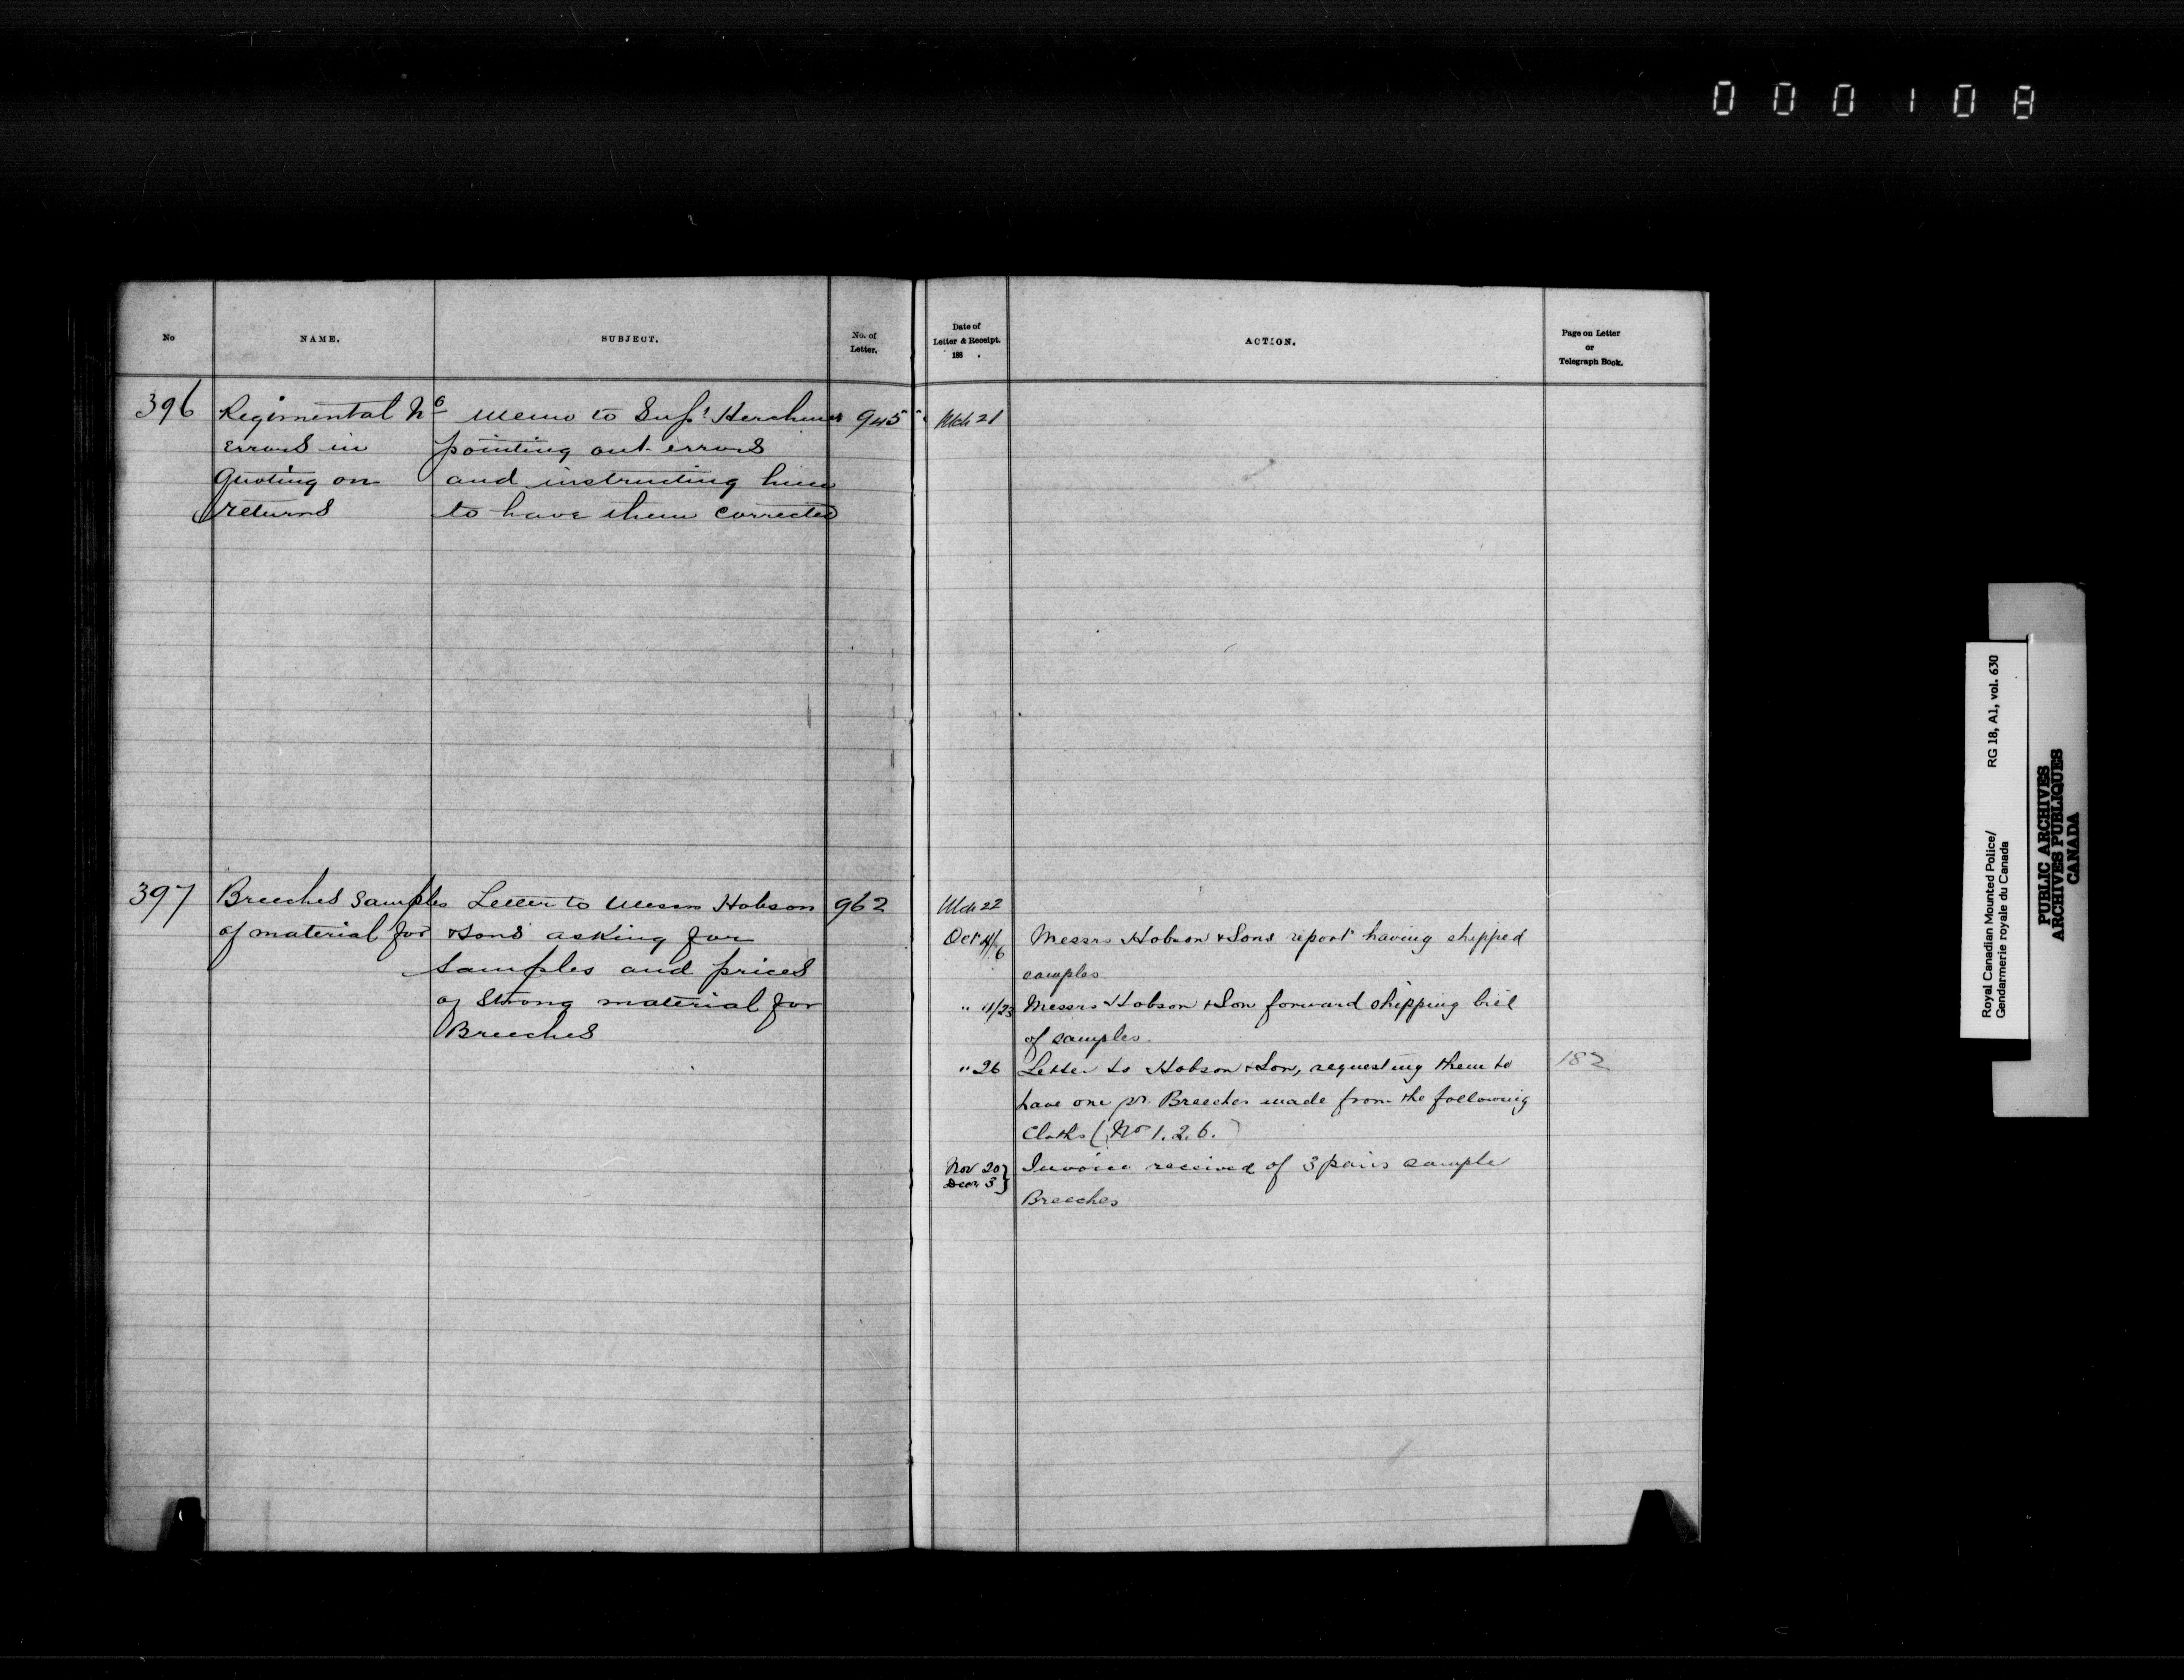 000108
No
NAME.
SUBJECT.
No. of
Letter.
Date of
Letter & Receipt.
188 .
ACTION.
Page on Letter
or
Telegraph Book.
396
Regimental No
errors in
Quoting on
returns
Memo to Supt Herchmer
pointing out errors
and instructing him
to have them corrected
945
Mch 21
397
Breeches Samples
of material for
Letter to Messrs Hobson
& Sons asking for
samples and prices
of Strong material for
Breeches
962
Mch 22
Oct 4/6
Messrs Hobson & Sons report having shipped
samples
" 11/23
Messrs Hobson & Son forward shipping bill
of samples.
" 26
Letter to Hobson & Son, requesting them to
have one pr. Breeches made from the following
Cloths (No 1. 2. 6.)
182
Nov 20
Decr 3 }
Invoice received of 3 pairs sample
Breeches
Royal Canadian Mounted Police/
Gendarmerie royale du Canada
RG 18, A1, vol. 630
PUBLIC ARCHIVES
ARCHIVES PUBLIQUES
CANADA